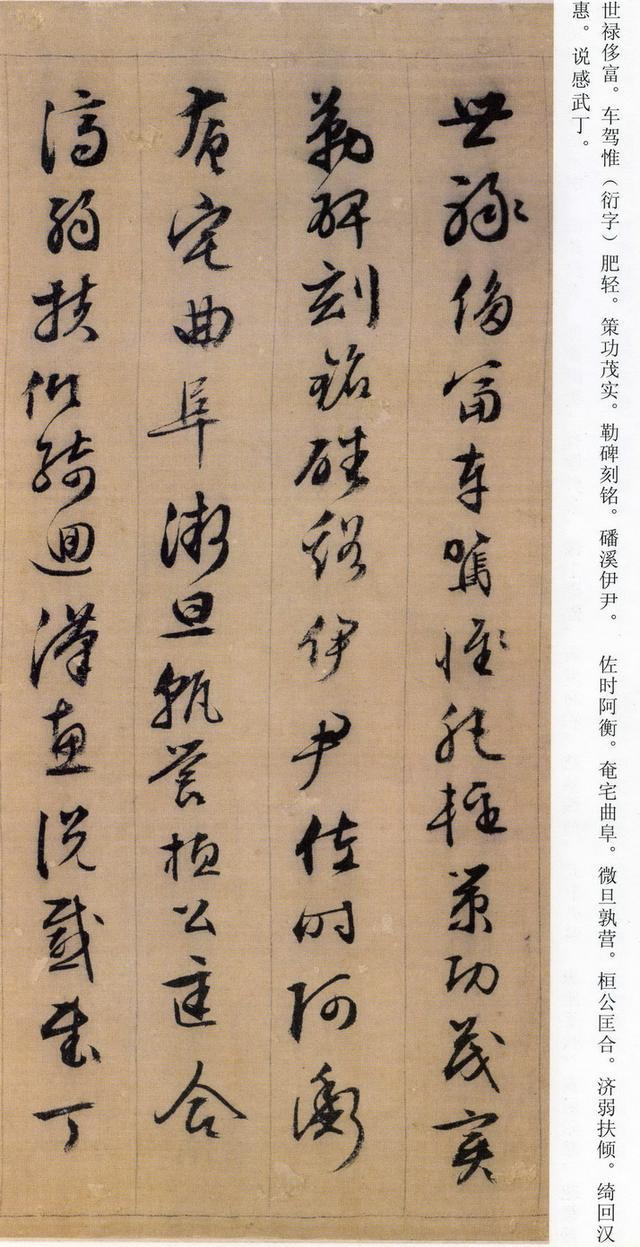 世禄侈富。车驾惟（衍字）肥轻。策功茂实。勒碑刻铭。磻溪伊尹。 佐时阿衡。奄宅曲阜。微旦孰营。桓公匡合。济弱扶倾。绮回汉
惠。说感武丁。
世祿侈富車駕惟肥輕策功茂實
勒碑刻銘磻谿伊尹佐時阿衡
奄宅曲阜微旦孰營桓公匡合
濟弱扶傾綺迴漢惠說感武丁